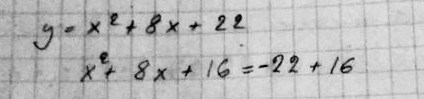 y = x² + 8x + 22
x² + 8x + 16 = -22 + 16